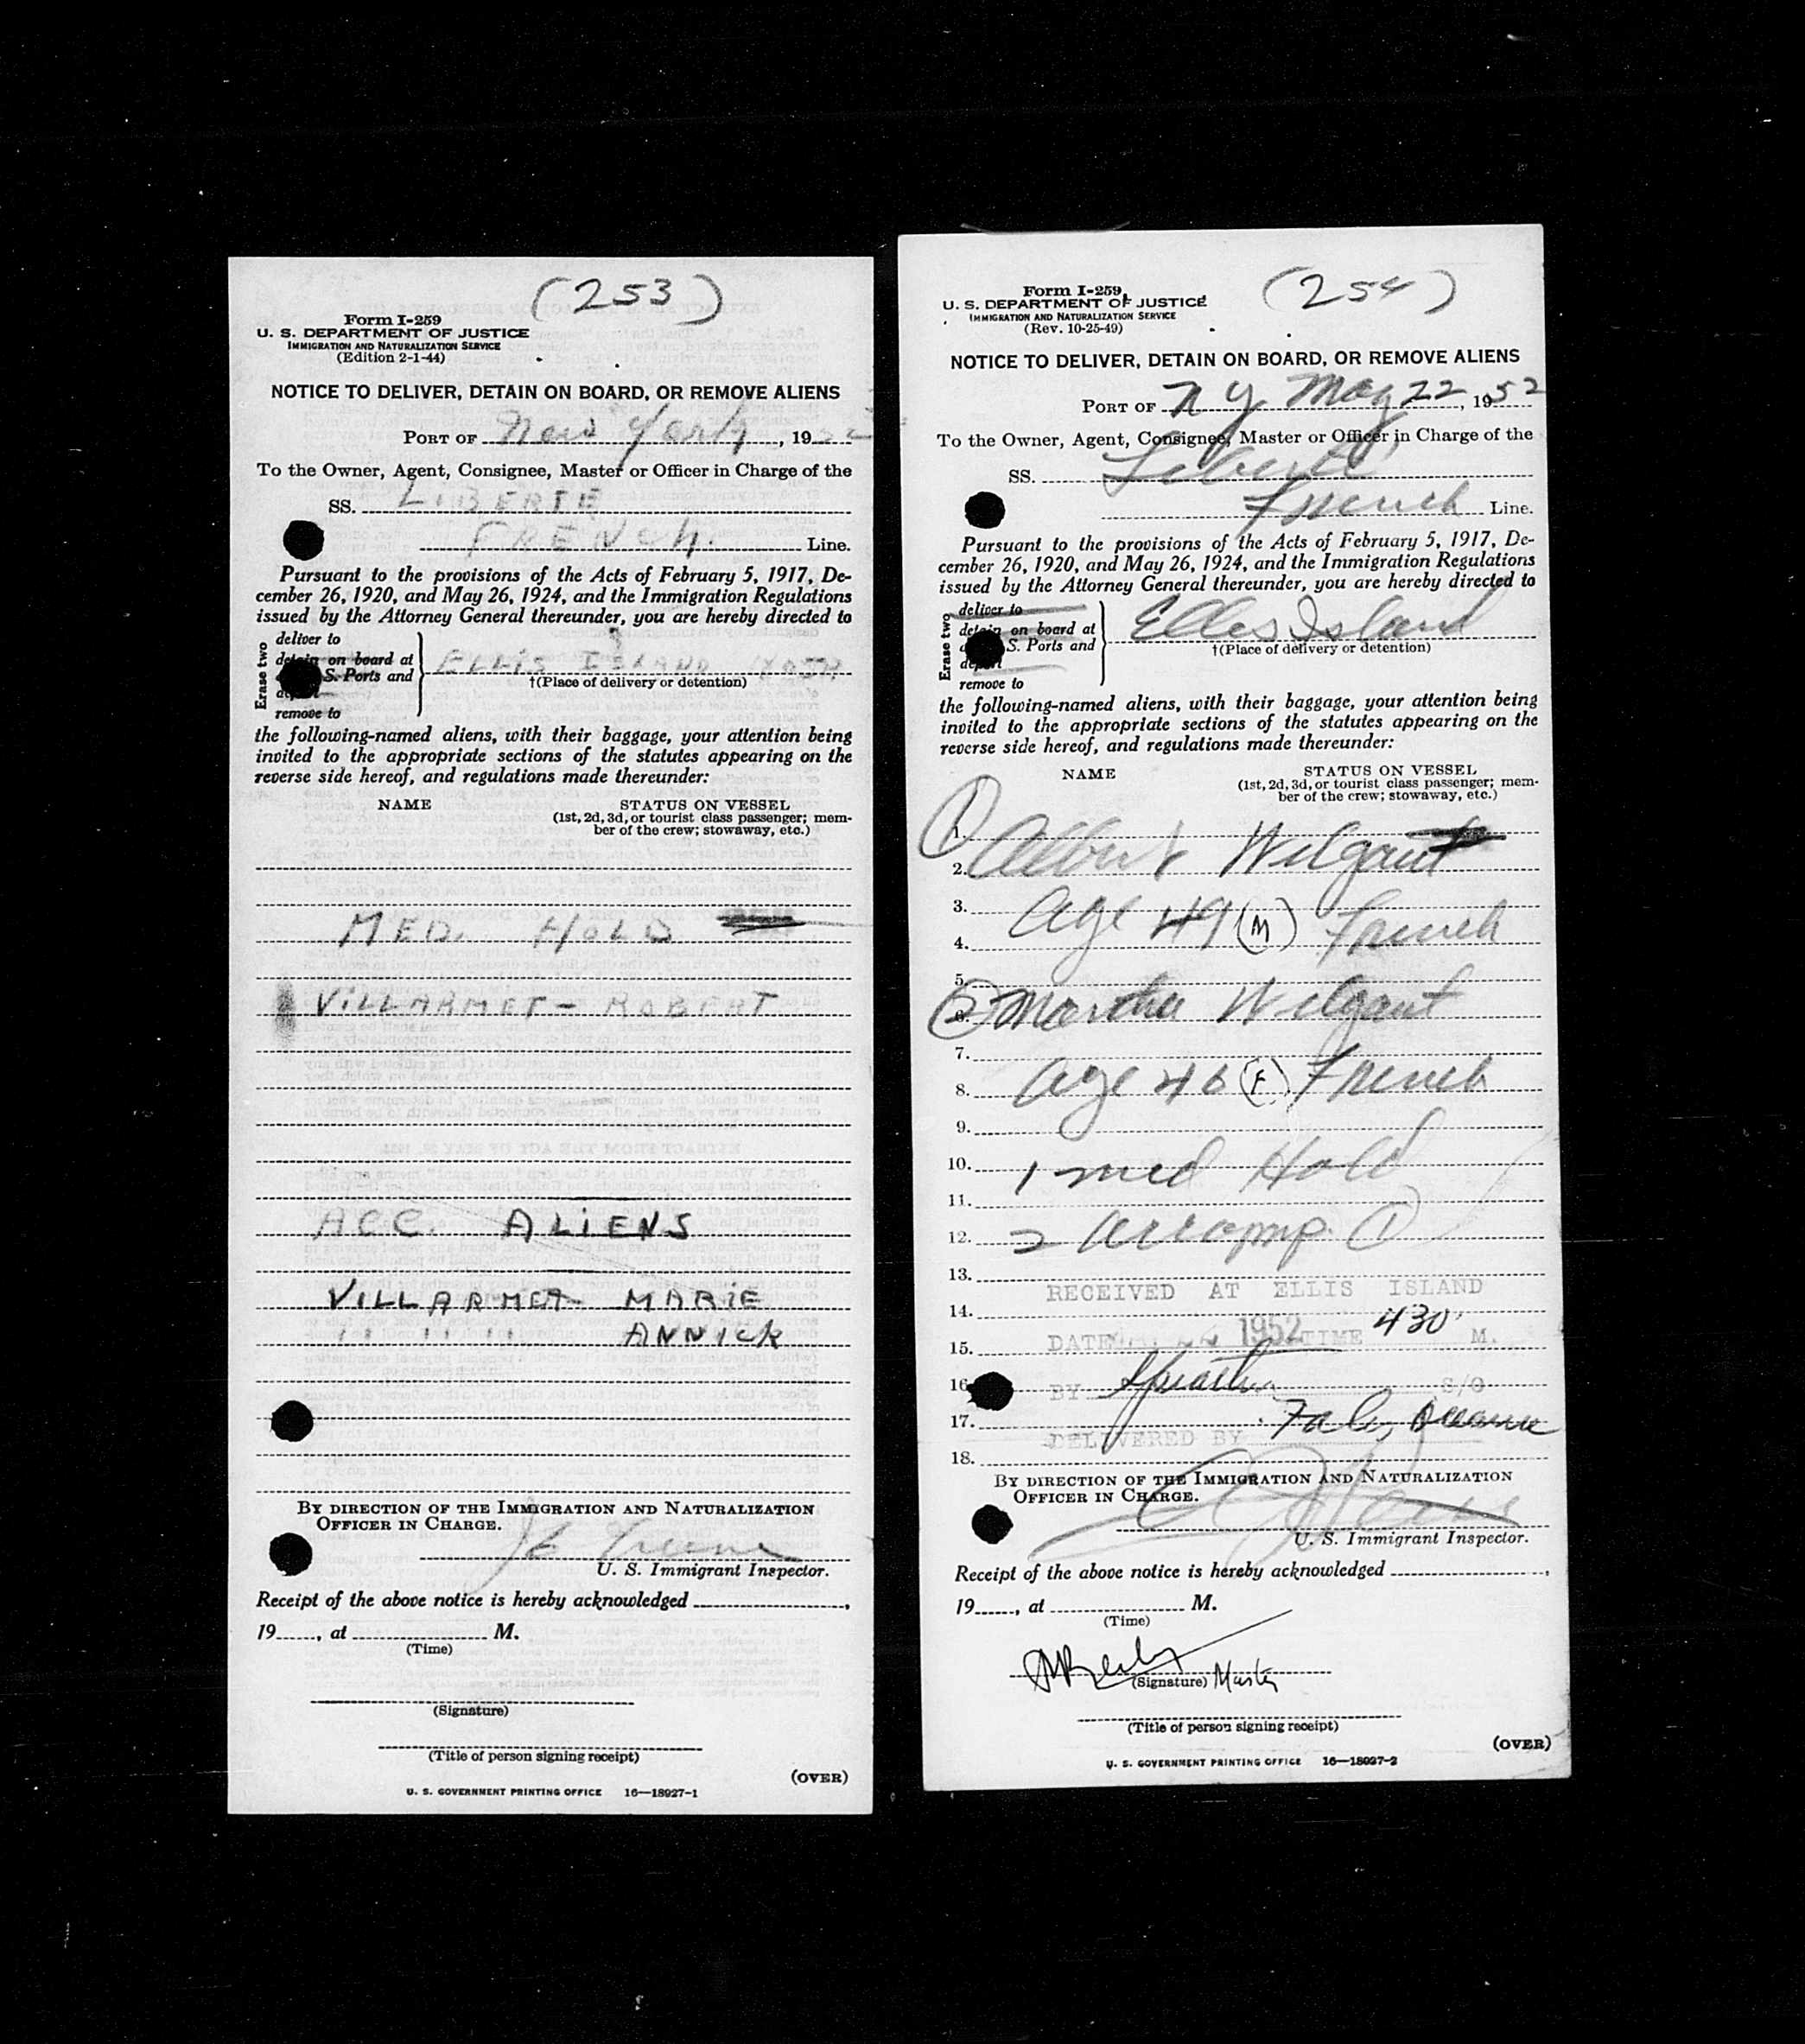 (253)
Form I-259
U. S. DEPARTMENT OF JUSTICE
IMMIGRATION AND NATURALIZATION SERVICE
(Edition 2-1-44)
NOTICE TO DELIVER, DETAIN ON BOARD, OR REMOVE ALIENS
PORT OF New York, 1952
To the Owner, Agent, Consignee, Master or Officer in Charge of the
SS. LIBERTE
FRENCH Line.
Pursuant to the provisions of the Acts of February 5, 1917, De-
cember 26, 1920, and May 26, 1924, and the Immigration Regulations
issued by the Attorney General thereunder, you are hereby directed to
Erase two
deliver to
detain on board at
S. Ports and
remove to
ELLIS ISLAND
†(Place of delivery or detention)
the following-named aliens, with their baggage, your attention being
invited to the appropriate sections of the statutes appearing on the
reverse side hereof, and regulations made thereunder:
NAME STATUS ON VESSEL
(1st, 2d, 3d, or tourist class passenger; mem-
ber of the crew; stowaway, etc.)
MED. HOLD
VILLARMET - ROBERT
ACC. ALIENS
VILLARMET MARIE
" " " ANNICK
BY DIRECTION OF THE IMMIGRATION AND NATURALIZATION
OFFICER IN CHARGE.
U. S. Immigrant Inspector.
Receipt of the above notice is hereby acknowledged ,
19 , at M.
(Time)
(Signature)
(Title of person signing receipt)
(OVER)
U. S. GOVERNMENT PRINTING OFFICE 16—18927-1
(254)
Form I-259
U. S. DEPARTMENT OF JUSTICE
IMMIGRATION AND NATURALIZATION SERVICE
(Rev. 10-25-49)
NOTICE TO DELIVER, DETAIN ON BOARD, OR REMOVE ALIENS
PORT OF N Y May 22, 1952
To the Owner, Agent, Consignee, Master or Officer in Charge of the
SS. Liberté
French Line.
Pursuant to the provisions of the Acts of February 5, 1917, De-
cember 26, 1920, and May 26, 1924, and the Immigration Regulations
issued by the Attorney General thereunder, you are hereby directed to
Erase two
deliver to
detain on board at
S. Ports and
remove to
Ellis Island
†(Place of delivery or detention)
the following-named aliens, with their baggage, your attention being
invited to the appropriate sections of the statutes appearing on the
reverse side hereof, and regulations made thereunder:
NAME STATUS ON VESSEL
(1st, 2d, 3d, or tourist class passenger; mem-
ber of the crew; stowaway, etc.)
1.
2. (1) Albert Welgant
3.
4. Age 49 (M) French
5.
6. (2) Martha Welgant
7.
8. Age 46 (F) French
9.
10. 1 med Hold
11.
12. 2 accomp. (1)
13.
RECEIVED AT ELLIS ISLAND
14.
DATE 22 1952 TIME 430 M.
15.
16. BY S/O
17.
DELIVERED BY
18.
BY DIRECTION OF THE IMMIGRATION AND NATURALIZATION
OFFICER IN CHARGE.
U. S. Immigrant Inspector.
Receipt of the above notice is hereby acknowledged ,
19 , at M.
(Time)
(Signature) Master
(Title of person signing receipt)
(OVER)
U. S. GOVERNMENT PRINTING OFFICE 16—18927-2